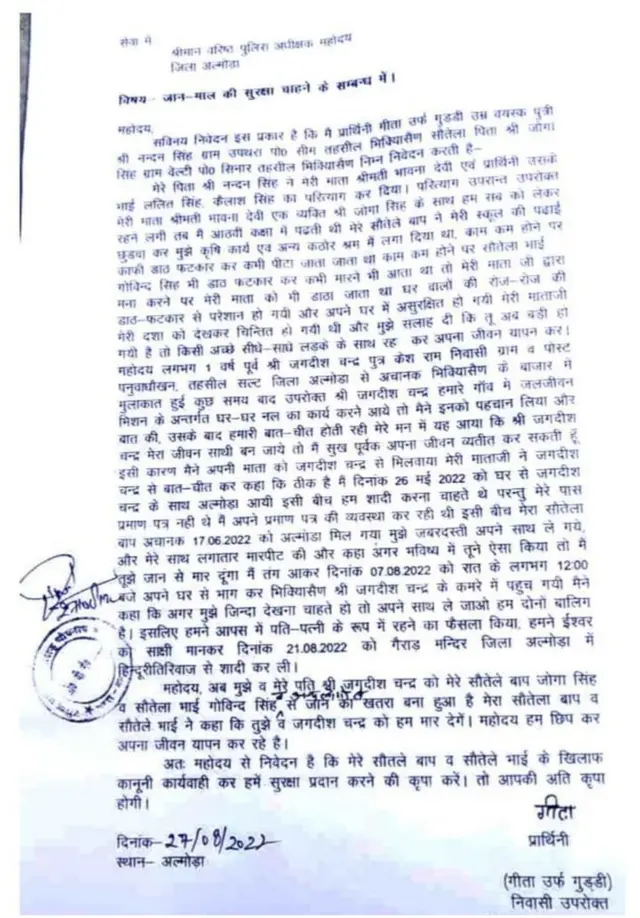 सेवा में
श्रीमान वरिष्ठ पुलिस अधीक्षक महोदय
जिला अल्मोड़ा
विषय- जान-माल की सुरक्षा चाहने के सम्बन्ध में।
महोदय,
सविनय निवेदन इस प्रकार है कि मै प्रार्थिनी गीता उर्फ गुड्डी उम्र वयस्क पुत्री
श्री नन्दन सिंह ग्राम उपथरा पो0 सीम तहसील भिक्यिासैण सौतेला पिता श्री जोगा
सिंह ग्राम वेल्टी पो0 सिनार तहसील भिक्यिासैण निम्न निवेदन करती है-
मेरे पिता श्री नन्दन सिंह ने मेरी माता श्रीमती भावना देवी एवं प्रार्थिनी उसके
भाई ललित सिंह, कैलाश सिंह का परित्याग कर दिया। परित्याग उपरान्त उपरोक्त
मेरी माता श्रीमती भावना देवी एक व्यक्ति श्री जोगा सिंह के साथ हम सब को लेकर
रहने लगी तब मै आठवी कक्षा में पढती थी मेरे सौतेले बाप ने मेरी स्कूल की पढाई
छुडवा कर मुझे कृषि कार्य एवं अन्य कठोर श्रम में लगा दिया था, काम कम होने पर
काफी डाठ फटकार कर कभी पीटा जाता जाता था काम कम होने पर सौतेला भाई
गोविन्द सिंह भी डाठ फटकार कर कभी मारने भी आता था तो मेरी माता जी द्वारा
मना करने पर मेरी माता को भी डाठा जाता था घर वालों की रोज-रोज की
डाठ-फटकार से परेशान हो गयी और अपने घर में असुरक्षित हो गयी मेरी माताजी
मेरी दशा को देखकर चिन्तित हो गयी थी और मुझे सलाह दी कि तू अब बडी हो
गयी है तो किसी अच्छे सीधे-साधे लडके के साथ रह कर अपना जीवन यापन कर।
महोदय लगभग 1 वर्ष पूर्व श्री जगदीश चन्द्र पुत्र केश राम निवासी ग्राम व पोस्ट
पनुवाधौखन, तहसील सल्ट जिला अल्मोडा से अचानक भिक्यिासैण के बाजार में
मुलाकात हुई कुछ समय बाद उपरोक्त श्री जगदीश चन्द्र हमारे गाँव में जलजीवन
मिशन के अन्तर्गत घर-घर नल का कार्य करने आये तो मैने इनको पहचान लिया और
बात की, उसके बाद हमारी बात-चीत होती रही मेरे मन में यह आया कि श्री जगदीश
चन्द्र मेरा जीवन साथी बन जाये तो मै सुख पूर्वक अपना जीवन व्यतीत कर सकती हूँ
इसी कारण मैने अपनी माता को जगदीश चन्द्र से मिलवाया मेरी माताजी ने जगदीश
चन्द्र से बात-चीत कर कहा कि ठीक है मै दिनांक 26 मई 2022 को घर से जगदीश
चन्द्र के साथ अल्मोडा आयी इसी बीच हम शादी करना चाहते थे परन्तु मेरे पास
प्रमाण पत्र नही थे मै अपने प्रमाण पत्र की व्यवस्था कर रही थी इसी बीच मेरा सौतेला
बाप अचानक 17.06.2022 को अल्मोडा मिल गया मुझे जबरदस्ती अपने साथ ले गये,
और मेरे साथ लगातार मारपीट की और कहा अगर भविष्य में तूने ऐसा किया तो मै
तुझे जान से मार दूंगा मै तंग आकर दिनांक 07.08.2022 को रात के लगभग 12:00
बजे अपने घर से भाग कर भिक्यिासैण श्री जगदीश चन्द्र के कमरे में पहुच गयी मैने
कहा कि अगर मुझे जिन्दा देखना चाहते हो तो अपने साथ ले जाओ हम दोनों बालिग
है। इसलिए हमने आपस में पति-पत्नी के रूप में रहने का फैसला किया, हमने ईश्वर
को साक्षी मानकर दिनांक 21.08.2022 को गैराड़ मन्दिर जिला अल्मोडा में
हिन्दूरीतिरिवाज से शादी कर ली।
महोदय, अब मुझे व मेरे पति श्री जगदीश चन्द्र को मेरे सौतेले बाप जोगा सिंह
व सौतेला भाई गोविन्द सिंह से जान का खतरा बना हुआ है मेरा सौतेला बाप व
सौतेले भाई ने कहा कि तुझे व जगदीश चन्द्र को हम मार देगें। महोदय हम छिप कर
अपना जीवन यापन कर रहे है।
अतः महोदय से निवेदन है कि मेरे सौतले बाप व सौतेले भाई के खिलाफ
कानूनी कार्यवाही कर हमें सुरक्षा प्रदान करने की कृपा करें। तो आपकी अति कृपा
होगी।
गीता
दिनांक- 27/08/2022
प्रार्थिनी
स्थान- अल्मोड़ा
(गीता उर्फ गुड्डी)
निवासी उपरोक्त